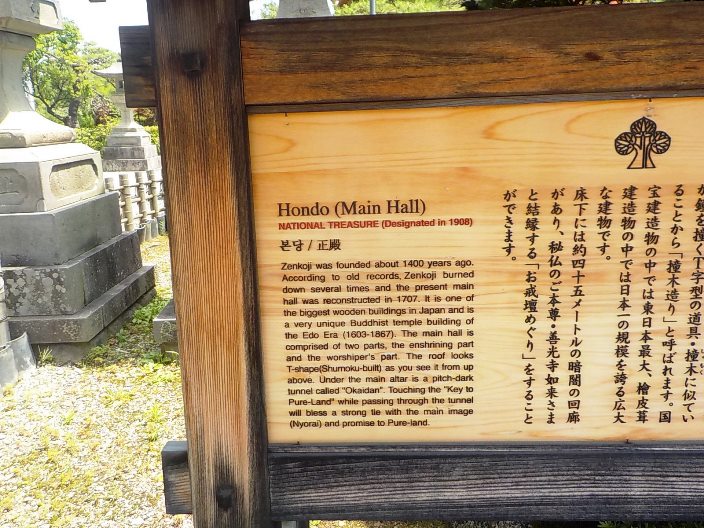 Hondo (Main Hall)
NATIONAL TREASURE (Designated in 1908)
본당 / 正殿
Zenkoji was founded about 1400 years ago.
According to old records, Zenkoji burned
down several times and the present main
hall was reconstructed in 1707. It is one of
the biggest wooden buildings in Japan and is
a very unique Buddhist temple building of
the Edo Era (1603-1867). The main hall is
comprised of two parts, the enshrining part
and the worshiper's part. The roof looks
T-shape(Shumoku-built) as you see it from up
above. Under the main altar is a pitch-dark
tunnel called "Okaidan". Touching the "Key to
Pure-Land" while passing through the tunnel
will bless a strong tie with the main image
(Nyorai) and promise to Pure-land.
が鐘を撞くT字型の道具・撞木に似てい
ることから「撞木造り」と呼ばれます。国
宝建造物の中では東日本最大、檜皮葺
建造物の中では日本一の規模を誇る広大
な建物です。
床下には約四十五メートルの暗闇の回廊
があり、秘仏のご本尊・善光寺如来さま
と結縁する「お戒壇めぐり」をすること
ができます。